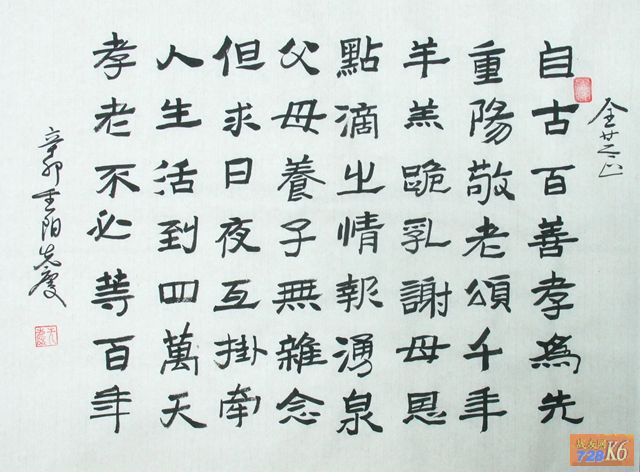 自古百善孝為先
重陽敬老頌千年
羊羔跪乳謝母恩
點滴之情報湧泉
父母養子無雜念
但求日夜互掛牽
人生活到四萬天
孝老不必等百年
辛卯重阳先慶
战友网
728K6